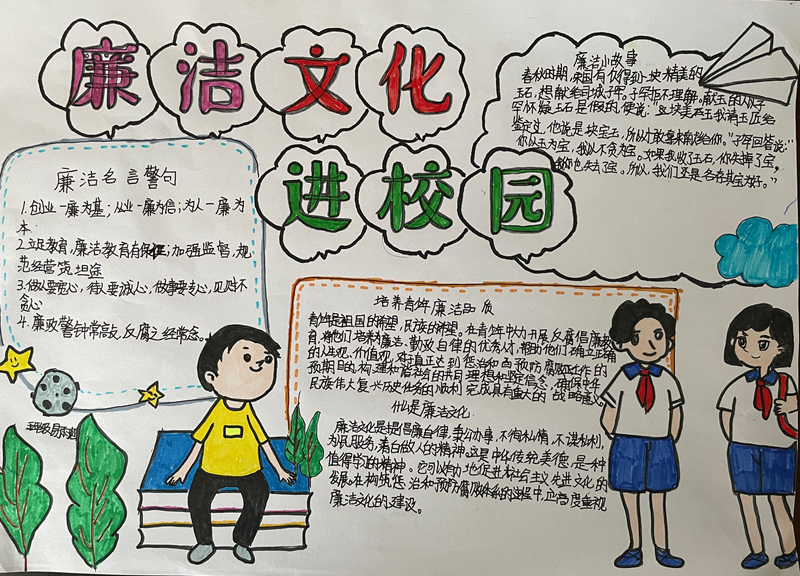 廉洁文化
进校园
廉洁小故事
春秋时期,宋国有位得到一块精美的
玉石,想献给司城子罕。子罕拒不理解,献玉的人以子
罕怀疑玉石是假的,便说:"这块美玉我请玉匠给
鉴定过,他说是块宝玉,所以才敢拿来献给你。"子罕回答说:"
你以玉为宝,我以不贪为宝。如果我收了玉石,你失掉了宝,
我也失去了宝。所以,我们还是各存其宝为好。"
廉洁名言警句
1.创业一廉为基;从业一廉为信;为人一廉为
本.
2.立足教育,廉洁教育有保证;加强监督,规
范经营筑坦途
3.做人要宽心,待人要诚心,做事要专心,见财不
贪心
4.廉政警钟常敲,反腐之经常念。
培养青少年廉洁品质
青年是祖国的希望,民族的希望。在青年中大力开展反腐倡廉教
育,将他们培养为廉洁、勤政自律的优秀人才,帮助他们确立正确
的人生观、价值观,对真正达到惩治和预防腐败工作的
预期目的,构建和谐社会的共同理想和坚定信念,确保中华
民族伟大复兴历史任务的顺利完成具有重大的战略意义
什么是廉洁文化
廉洁文化是提倡廉自律,秉公办事,不徇私情,不谋私利,
为民服务,清白做人的精神。这是中化传统美德,是一种
值得学习的精神。它可以有力地促进社会主义先进文化的
发展。在构筑惩治和预防腐败体系的过程中,应高度重视
廉洁文化的建设。